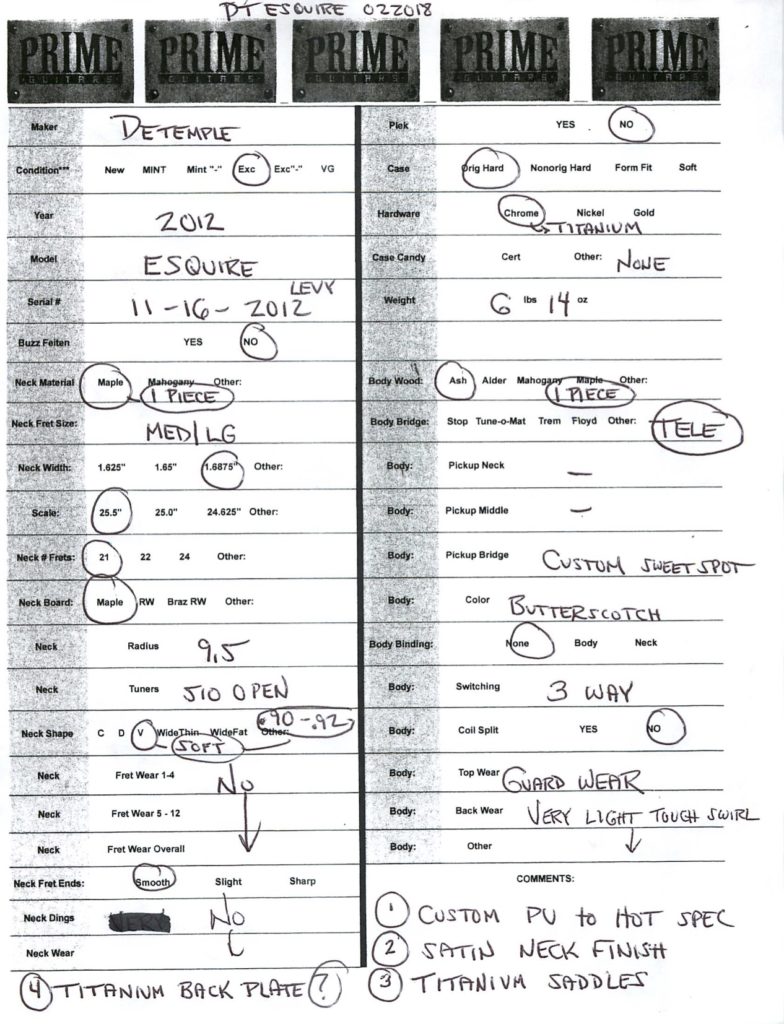 DT ESQUIRE 022018
PRIME GUITARS PRIME GUITARS PRIME GUITARS PRIME GUITARS PRIME GUITARS
Maker DETEMPLE
Condition*** New MINT Mint "-" Exc Exc"-" VG
Year 2012
Model ESQUIRE
LEVY
Serial # 11-16-2012
Buzz Feiten YES NO
Neck Material Maple Mahogany Other:
1 PIECE
Neck Fret Size: MED/LG
Neck Width: 1.625" 1.65" 1.6875" Other:
Scale: 25.5" 25.0" 24.625" Other:
Neck # Frets: 21 22 24 Other:
Neck Board: Maple RW Braz RW Other:
Neck Radius 9.5
Neck Tuners 510 OPEN
.90-.92
Neck Shape C D V WideThin WideFat Other:
SOFT
Neck Fret Wear 1-4 NO
Neck Fret Wear 5 - 12
Neck Fret Wear Overall
Neck Fret Ends: Smooth Slight Sharp
Neck Dings NO
Neck Wear
4 TITANIUM BACK PLATE ?
Plek YES NO
Case Orig Hard Nonorig Hard Form Fit Soft
Hardware Chrome Nickel Gold
TITANIUM
Case Candy Cert Other: NONE
Weight 6 lbs 14 oz
Body Wood: Ash Alder Mahogany Maple Other:
1 PIECE
Body Bridge: Stop Tune-o-Mat Trem Floyd Other: TELE
Body: Pickup Neck —
Body: Pickup Middle —
Body: Pickup Bridge CUSTOM SWEETSPOT
Body: Color BUTTERSCOTCH
Body Binding: None Body Neck
Body: Switching 3 WAY
Body: Coil Split YES NO
Body: Top Wear GUARD WEAR
Body: Back Wear VERY LIGHT TOUGH SWIRL
Body: Other
COMMENTS:
1 CUSTOM PU to HOT SPEC
2 SATIN NECK FINISH
3 TITANIUM SADDLES